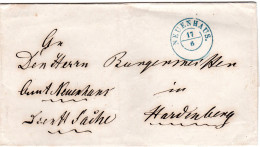 NEUENHAUS.
17
6
An
Den Herrn Burgermeister
Amt Neuenhaus in
Sache Hardenberg